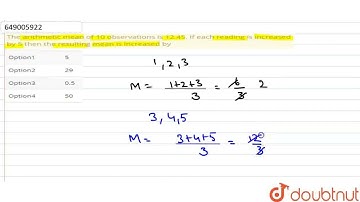 649005922
The arithmetic mean of 10 observations is 12.45. If each reading is increased
by 5 then the resulting mean is increased by
Option1 5
Option2 29
Option3 0.5
Option4 50
1, 2, 3
M = 1+2+3 / 3 = 6 / 3 2
3, 4, 5
M = 3+4+5 / 3 = 12 / 3
doubtnut